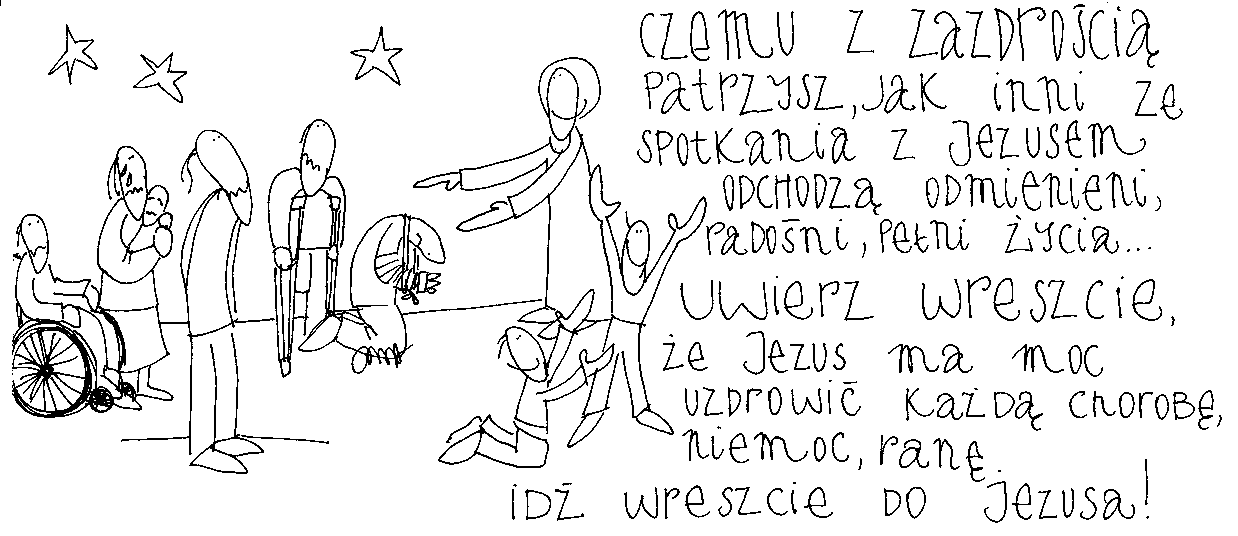 CZEMU Z ZAZDROŚCIĄ
PATRZYSZ, JAK INNI ZE
SPOTKANIA Z JEZUSEM
ODCHODZĄ ODMIENIENI,
RADOŚNI, PEŁNI ŻYCIA...
UWIERZ WRESZCIE,
ŻE JEZUS MA MOC
UZDROWIĆ KAŻDĄ CHOROBĘ,
NIEMOC, RANĘ.
IDŹ WRESZCIE DO JEZUSA!